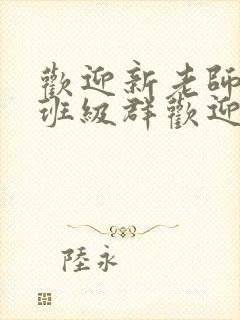 歡迎新老師
班級群歡迎
陸永